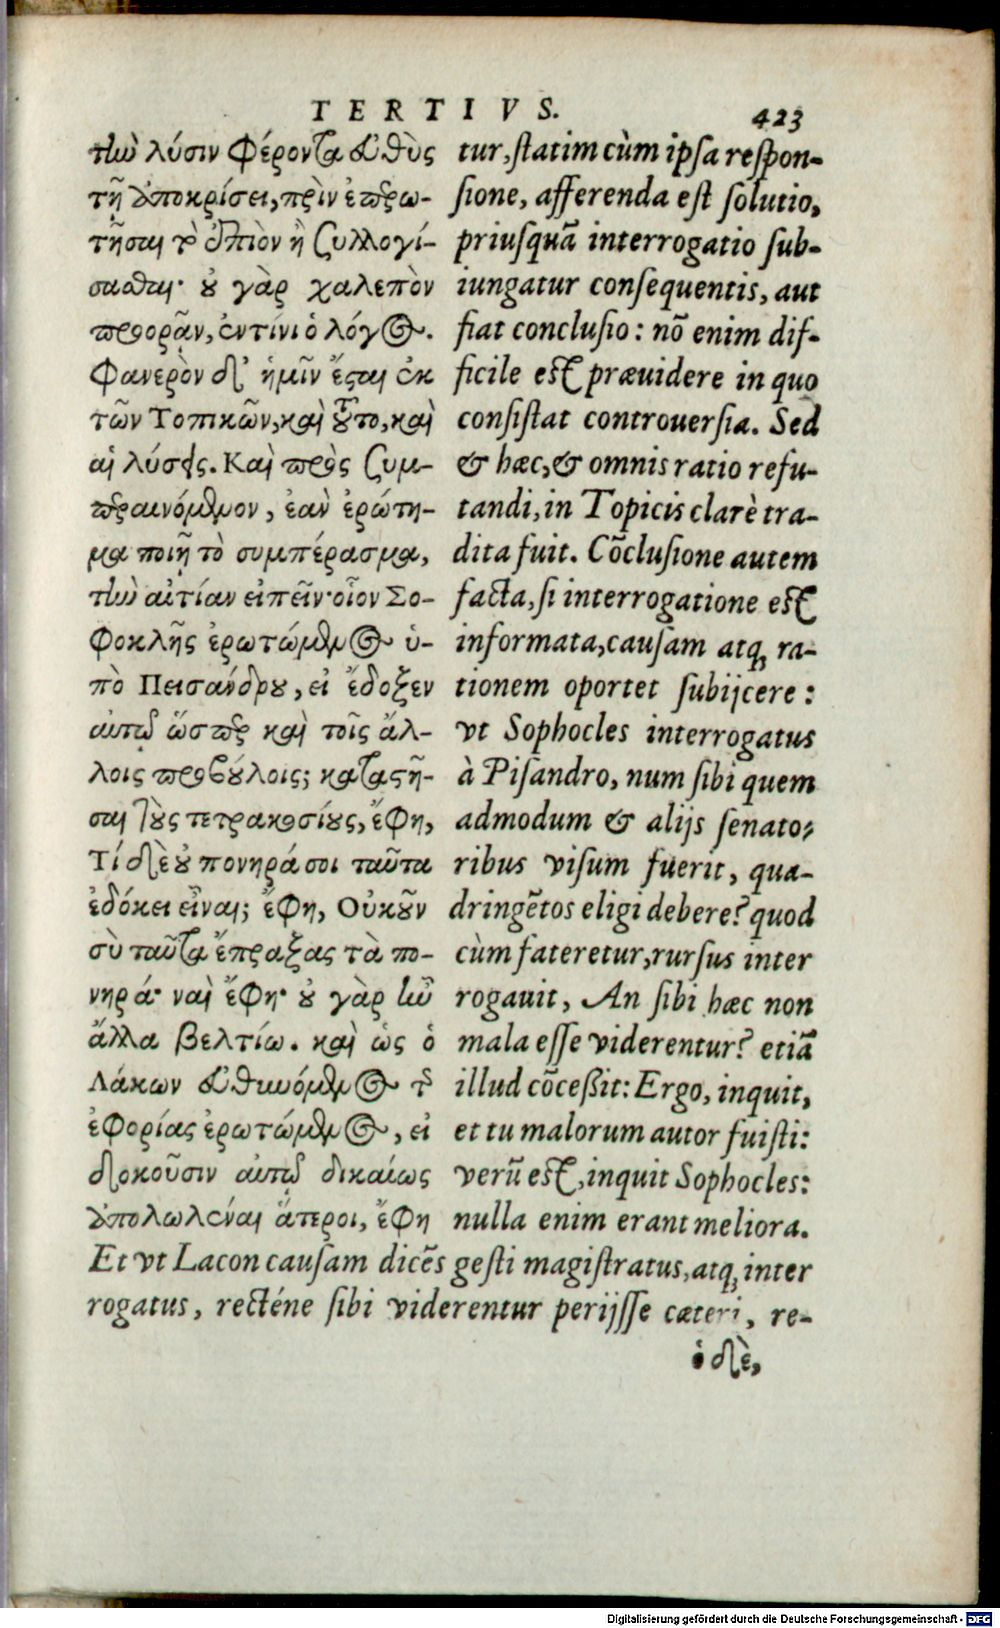 TERTIVS. 423
τὴν λύσιν φέροντα εὐθὺς
τῇ ἀποκρίσει, πρὶν ἐπερω-
τῆσαι τὸ ἐπιὸν ἢ συλλογί-
σασθαι· οὐ γὰρ χαλεπὸν
προορᾶν, ἐν τίνι ὁ λόγος.
Φανερὸν δ' ἡμῖν ἔσται ἐκ
τῶν Τοπικῶν, καὶ τοῦτο, καὶ
αἱ λύσεις. Καὶ πρὸς συμ-
περαινόμενον, ἐὰν ἐρώτη-
μα ποιῇ τὸ συμπέρασμα,
τὴν αἰτίαν εἰπεῖν· οἷον Σο-
φοκλῆς ἐρωτώμενος ὑ-
πὸ Πεισάνδρου, εἰ ἔδοξεν
αὐτῷ ὥσπερ καὶ τοῖς ἄλ-
λοις προβούλοις; καταστῆ-
σαι τοὺς τετρακοσίους, ἔφη,
Τί δὲ οὐ πονηρά σοι ταῦτα
ἐδόκει εἶναι; ἔφη, Οὐκοῦν
σὺ ταῦτα ἔπραξας τὰ πο-
νηρά· ναὶ ἔφη· οὐ γὰρ ἦν
ἄλλα βελτίω. καὶ ὡς ὁ
Λάκων εὐθυνόμενος τῆς
ἐφορίας ἐρωτώμενος, εἰ
δοκοῦσιν αὐτῷ δικαίως
ἀπολωλέναι ἅτεροι, ἔφη
tur, statim cùm ipsa respon-
sione, afferenda est solutio,
priusquā interrogatio sub-
iungatur consequentis, aut
fiat conclusio: nō enim dif-
ficile est præuidere in quo
consistat controuersia. Sed
& hæc, & omnis ratio refu-
tandi, in Topicis clarè tra-
dita fuit. Cōclusione autem
facta, si interrogatione est
informata, causam atq; ra-
tionem oportet subijcere:
vt Sophocles interrogatus
à Pisandro, num sibi quem
admodum & alijs senato-
ribus visum fuerit, qua-
dringētos eligi debere? quod
cùm fateretur, rursus inter
rogauit, An sibi hæc non
mala esse viderentur? etiā
illud cōceßit: Ergo, inquit,
et tu malorum autor fuisti:
verū est, inquit Sophocles:
nulla enim erant meliora.
Et vt Lacon causam dicēs gesti magistratus, atq; inter
rogatus, recténe sibi viderentur perijsse cæteri, re-
ὁ δὲ,
Digitalisierung gefördert durch die Deutsche Forschungsgemeinschaft - DFG